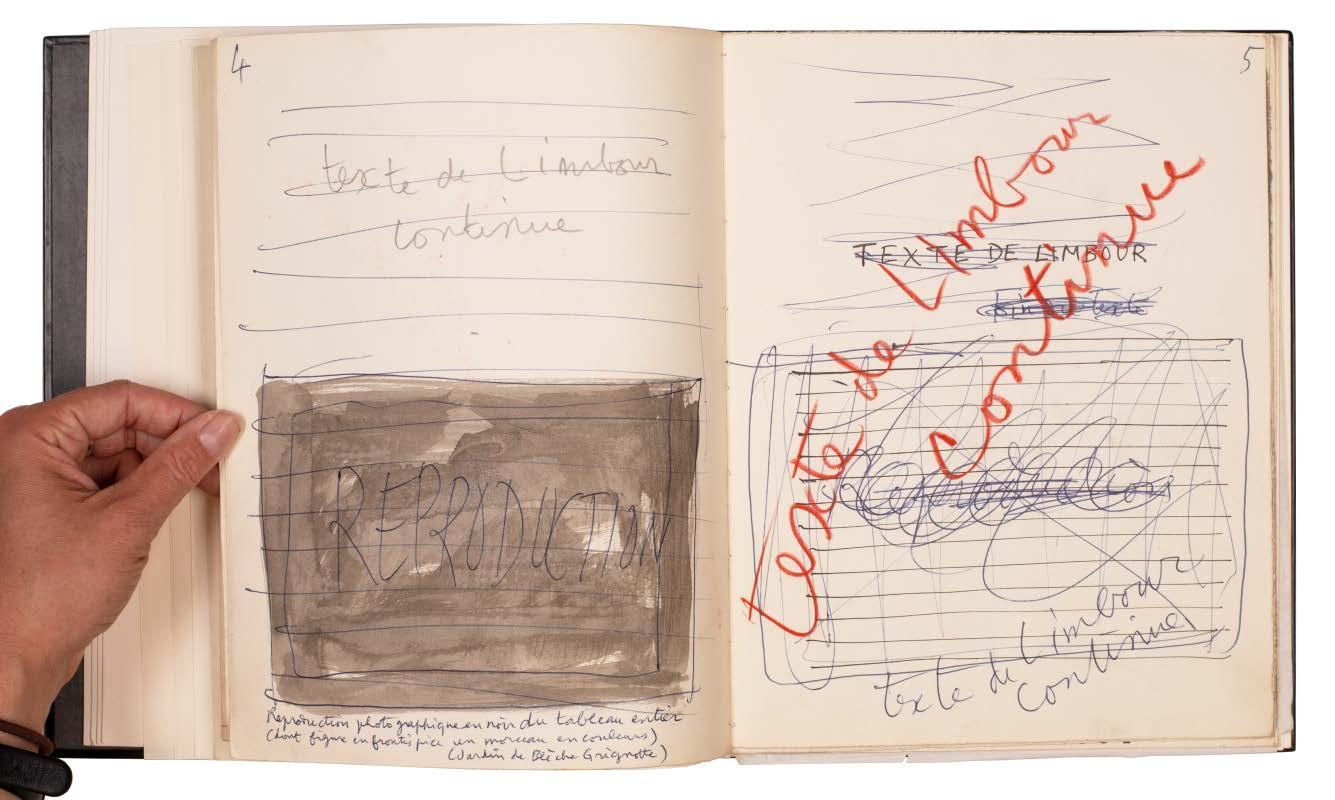 4
texte de Limbour
continue
REPRODUCTION
Reproduction photographique en noir du tableau entier
(dont figure en frontispice un morceau en couleurs)
(Jardin de Bibiche Grignotte)
5
texte de Limbour
continue
TEXTE DE LIMBOUR
Reproduction
texte de Limbour
continue